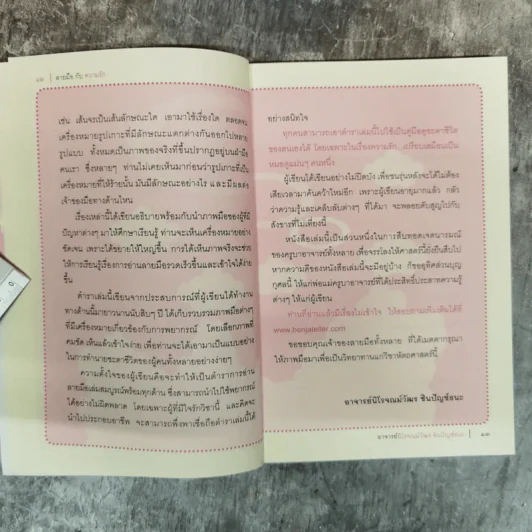 ๑๒ | ลายมือ กับ ความรัก
เช่น เส้นจรเป็นเส้นลักษณะใด เอามาใช้เรื่องใด ตลอดจน
เครื่องหมายรูปเกาะที่มีลักษณะแตกต่างกันออกไปหลาย
รูปแบบ ทั้งหมดเป็นภาพของจริงที่ขึ้นปรากฏอยู่บนฝ่ามือ
คนเรา ซึ่งหลายๆ ท่านไม่เคยเห็นมาก่อนว่ารูปเกาะที่เป็น
เครื่องหมายที่ให้ร้ายนั้น มันมีลักษณะอย่างไร และมีผลต่อ
เจ้าของมือทางด้านไหน
เรื่องเหล่านี้ได้เขียนอธิบายพร้อมกับนำภาพมือของผู้ที่มี
ปัญหาต่างๆ มาให้ศึกษาเรียนรู้ ท่านจะเห็นเครื่องหมายอย่าง
ชัดเจน เพราะได้ขยายให้ใหญ่ขึ้น การได้เห็นภาพจริงจะช่วย
ให้การเรียนรู้เรื่องการอ่านลายมือรวดเร็วขึ้นและเข้าใจได้ง่าย
ขึ้น
ตำราเล่มนี้เขียนจากประสบการณ์ที่ผู้เขียนได้ทำงาน
ทางด้านนี้มายาวนานนับสิบๆ ปี ได้เก็บรวบรวมภาพมือต่างๆ
ที่มีเครื่องหมายเกี่ยวข้องกับการพยากรณ์ โดยเลือกภาพที่
คมชัด เห็นแล้วเข้าใจง่าย เพื่อท่านจะได้เอามาเป็นแบบอย่าง
ในการทำนายชะตาชีวิตของผู้คนทั้งหลายอย่างง่ายๆ
ความตั้งใจของผู้เขียนคือจะทำให้เป็นตำราการอ่าน
ลายมือเล่มสมบูรณ์พร้อมทุกด้าน ซึ่งสามารถนำไปใช้พยากรณ์
ได้อย่างไม่ผิดพลาด โดยเฉพาะผู้ที่มีใจรักวิชานี้ และคิดจะ
นำไปประกอบอาชีพ จะสามารถพึ่งพาเชื่อถือตำราเล่มนี้ได้
อย่างสนิทใจ
ทุกคนสามารถเอาตำราเล่มนี้ไปใช้เป็นคู่มือดูชะตาชีวิต
ของตนเองได้ โดยเฉพาะในเรื่องความรัก เปรียบเสมือนเป็น
หมอดูแม่นๆ คนหนึ่ง
ผู้เขียนได้เขียนอย่างไม่ปิดบัง เพื่อชนรุ่นหลังจะได้ไม่ต้อง
เสียเวลามาค้นคว้าใหม่อีก เพราะผู้เขียนอายุมากแล้ว กลัว
ว่าความรู้และเคล็บลับต่างๆ ที่ได้มา จะพลอยดับสูญไปกับ
สังขารที่ไม่เที่ยงนี้
หนังสือเล่มนี้เป็นส่วนหนึ่งในการสืบทอดเจตนารมณ์
ของครูบาอาจารย์ทั้งหลาย เพื่อจรรโลงให้ศาสตร์นี้ยั่งยืนสืบไป
หากความดีของหนังสือเล่มนี้จะมีอยู่บ้าง ก็ขออุทิศส่วนบุญ
กุศลนี้ ให้แก่พ่อแม่ครูบาอาจารย์ที่ได้ประสิทธิ์ประสาทความรู้
ต่างๆ ให้แก่ผู้เขียน
ท่านที่อ่านแล้วมีเรื่องไม่เข้าใจ ให้สอบถามเพิ่มเติมได้ที่
www.benjaleiter.com
ขอขอบคุณเจ้าของลายมือทั้งหลาย ที่ได้เมตตากรุณา
ให้ภาพมือมาเพื่อเป็นวิทยาทานแก่วิชาหัตถศาสตร์นี้
อาจารย์นิโรจณม์วัฒร ชินปัญช์ธนะ
อาจารย์นิโรจณม์วัฒร ชินปัญช์ธนะ | ๑๓